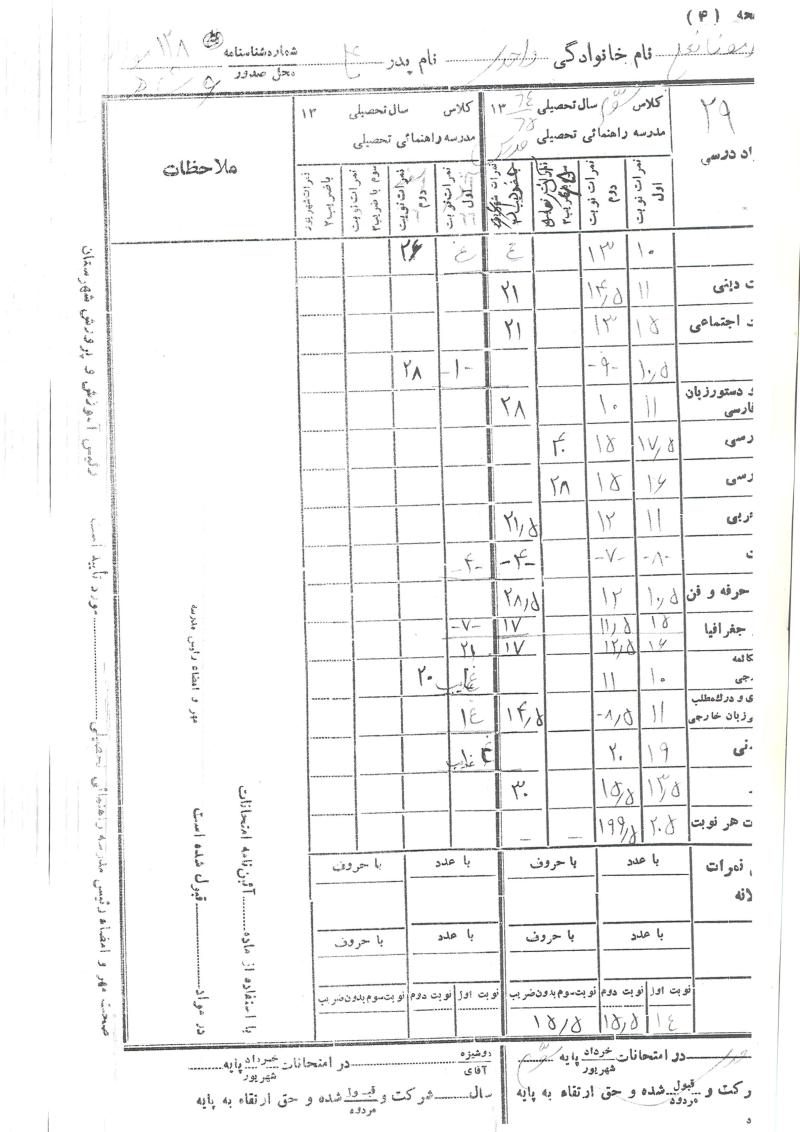 (۴)
نام خانوادگی نام پدر شماره شناسنامه ۱۲۸
محل صدور
۲۹ کلاس سوم سال تحصیلی ۱۳ ۶۴ ۶۵ کلاس سال تحصیلی ۱۳ ملاحظات
مدرسه راهنمائی تحصیلی مدرسه راهنمائی تحصیلی
نمرات نوبت اول
نمرات نوبت دوم
نمرات نوبت اول
نمرات نوبت دوم
نمرات نوبت سوم با ضریب ۲
نمرات شهریور با ضریب ۲
۱۰ ۱۳ ع غ ۲۶
ت دینی ۱۱ ۱۴٫۵ ۲۱
ت اجتماعی ۱۵ ۱۳ ۲۱
۱۰٫۵ -۹- -۱۰- ۲۸
دستور زبان فارسی ۱۱ ۱۰ ۲۸
رسی ۱۷٫۵ ۱۵ ۴۰
رسی ۱۶ ۱۵ ۲۸
ربی ۱۱ ۱۲ ۲۱٫۵
ت -۸- -۷- -۴- -۴-
حرفه و فن ۱۰٫۵ ۱۲ ۲۸٫۵
۱۵ ۱۱٫۵ ۱۷ -۷-
جغرافیا ۱۶ ۱۲٫۵ ۱۷ ۲۱
کالمه
جی ۱۰ ۱۱ غایب ۲۰
ی و درک مطلب
زبان خارجی ۱۱ -۸٫۵ ۱۴٫۵ ۱۴
نی ۱۹ ۲۰ غایب
۱۳٫۵ ۱۵٫۵ ۳۰
ت هر نوبت ۲۰۵ ۱۹۹٫۵ – –
نمرات با عدد با حروف با عدد با حروف
لانه
با عدد با حروف با عدد با حروف
نوبت اول نوبت دوم نوبت سوم بدون ضریب نوبت اول نوبت دوم نوبت سوم بدون ضریب
۱۴ ۱۵٫۵ ۱۵٫۵
در امتحانات خرداد شهریور پایه سوم
دوشیزه آقای در امتحانات خرداد شهریور پایه
رکت و قبول مردود شده و حق ارتقاء به پایه
سال شرکت و قبول مردود شده و حق ارتقاء به پایه
با استفاده از ماده آئین‌نامه امتحانات
در مواد قبول شده است
مهر و امضاء رئیس مدرسه
صحت مهر و امضاء رئیس مدرسه راهنمائی تحصیلی مورد تأیید است
رئیس آموزش و پرورش شهرستان